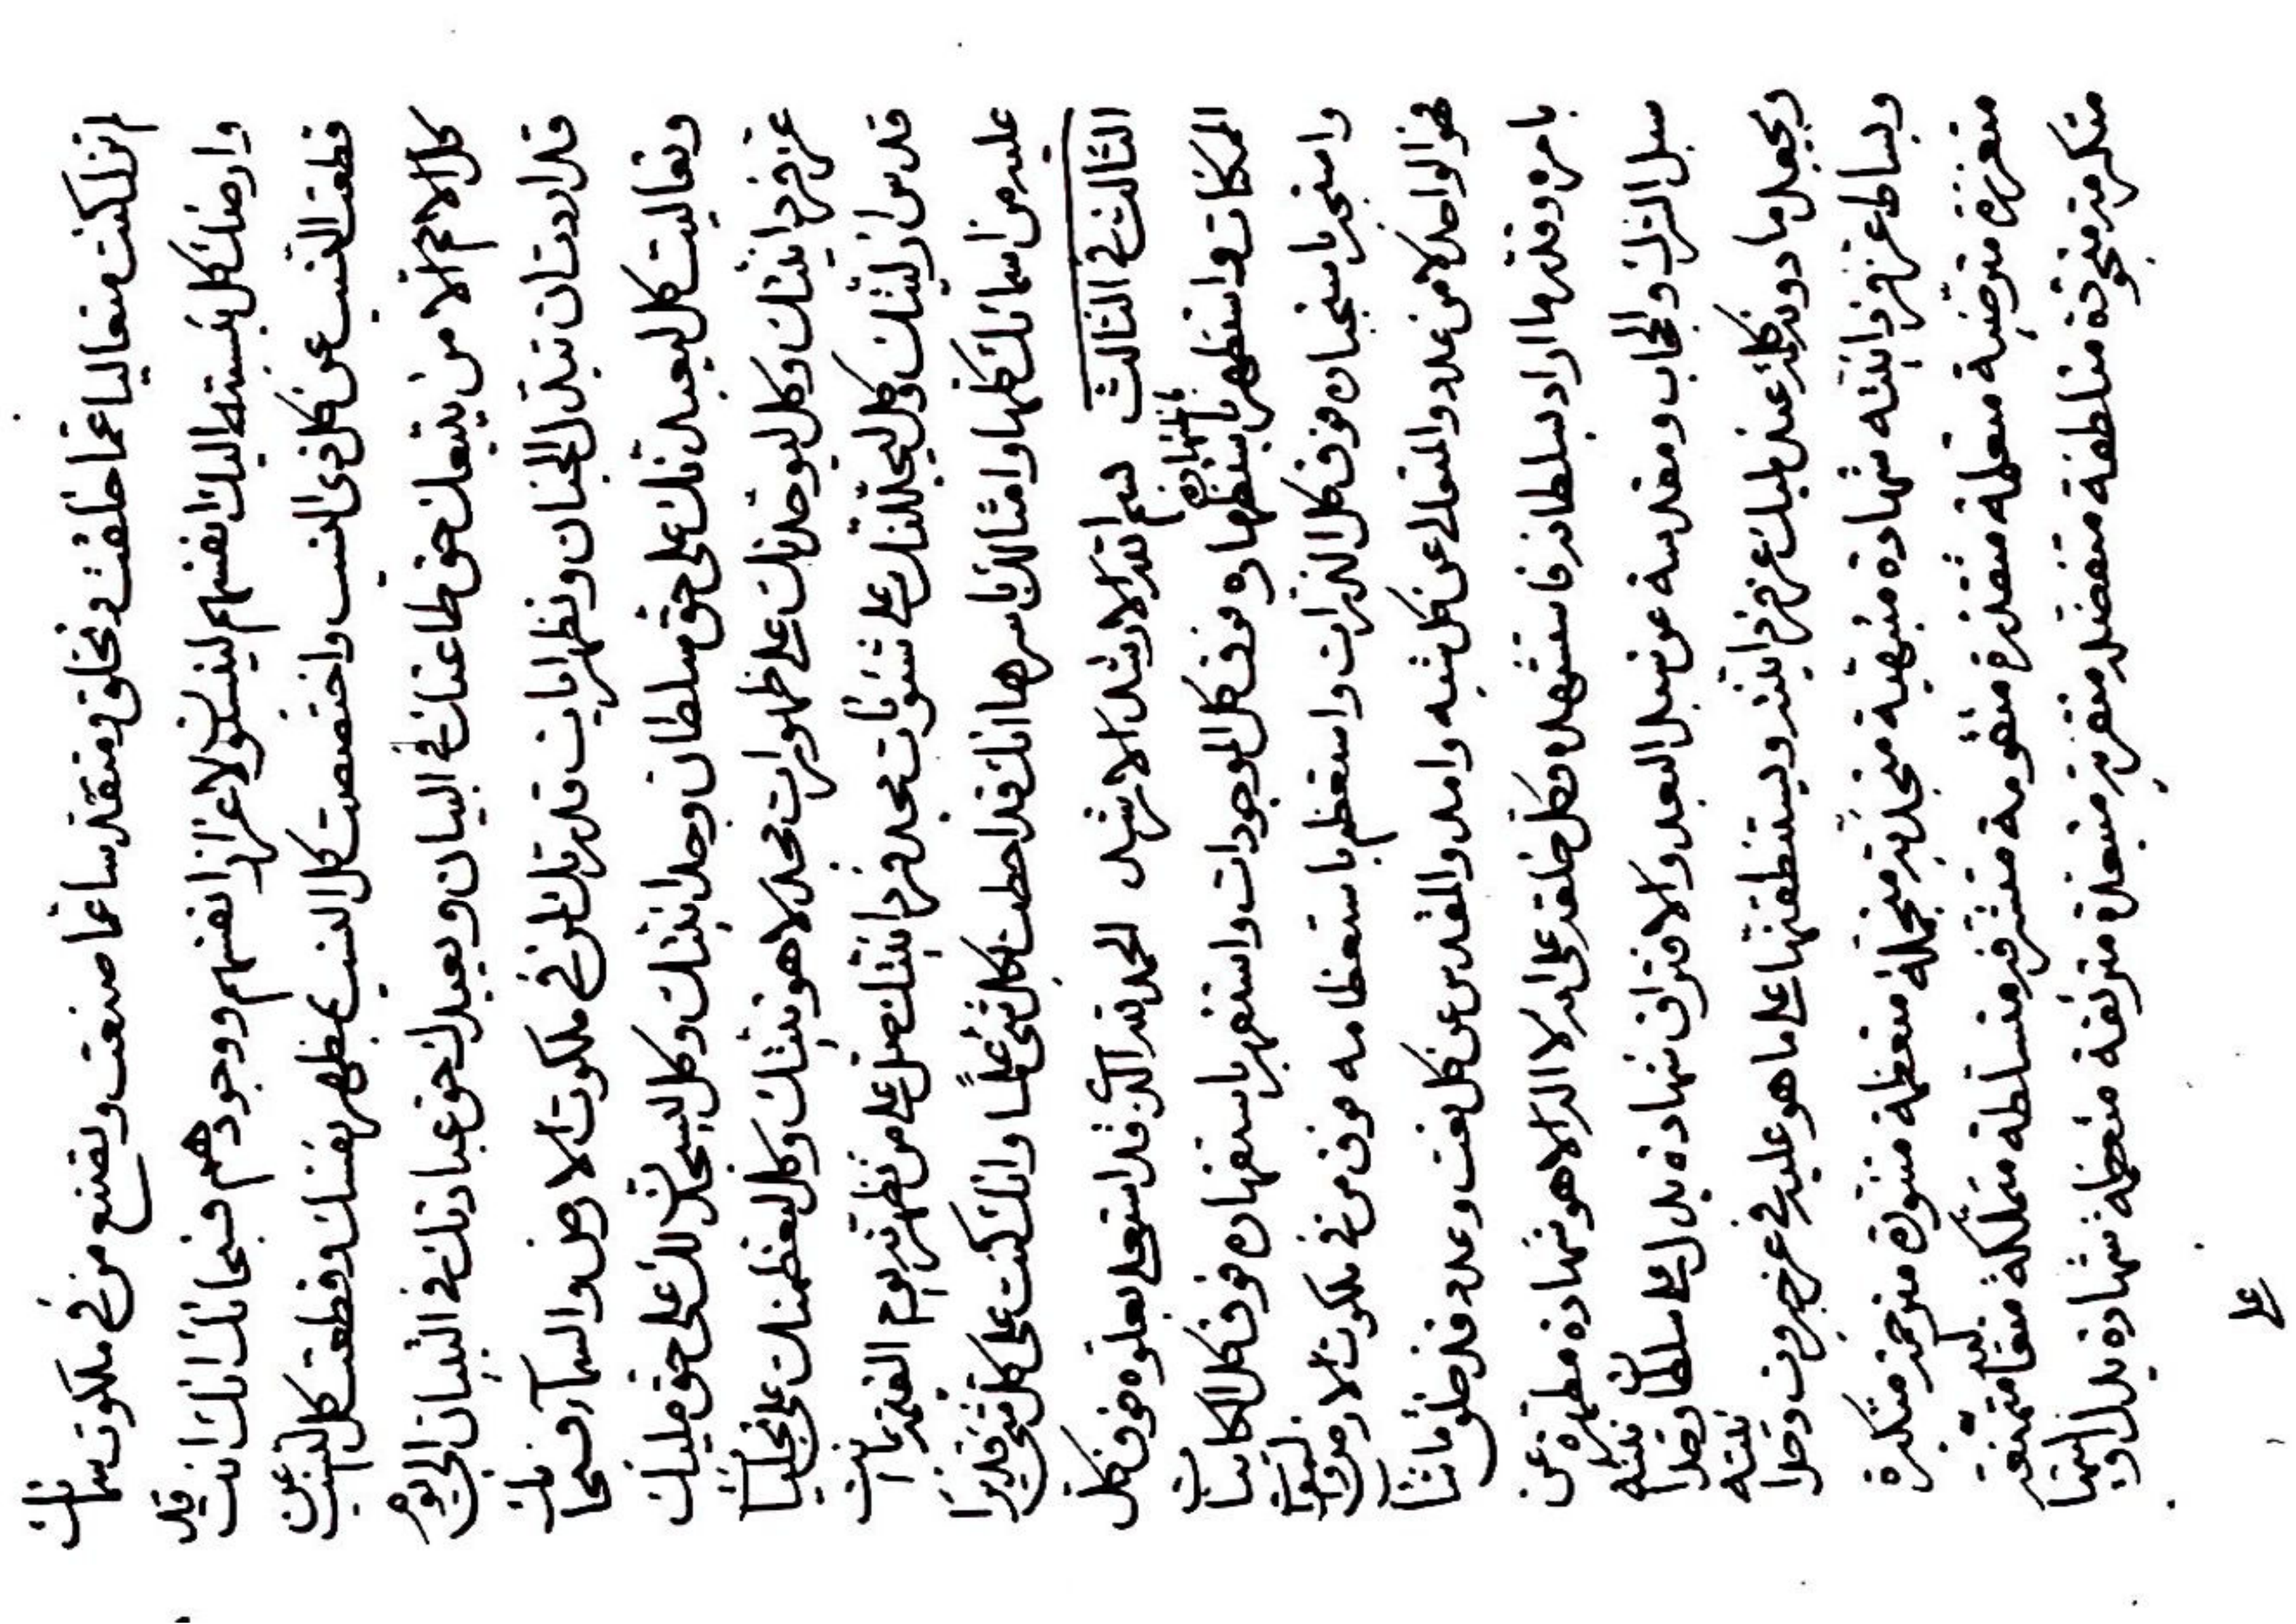 لم تزل كنت متعاليا عما خلقت وتخلق ومتقدسا عما صنعت وتصنع من في ملكوت سمائك
وارضك كل ينسبن اليك انفسهم لينسبون الاعزاز انفسهم ووجودهم فسبحانك انك انت قد
قطعت النسب عن كل ذي النسب واختصصت كل النسب بمظهر نفسك وقطعت كل النسب عن
كل الامم الا من يتبعك حق طاعتك في البيان ويعبدك حق عبادتك في التبيان الى يوم
قد اردت ان تبدل الجنان وتظهر ايات قدرتك لمن في ملكوت الارض والسماء فسبحانك
وتعاليت كل ليعبدنك على حق سلطان وحدانيتك وكل ليسجدن لك على حق مليك
عز فردانيتك وكل ليوحدنك على ظهورات مجد لاهوتيتك وكل ليعظمنك على تجليات
قدس ازليتك وكل ليجللنك على شئونات مجد فردانيتك صل على من تظهرنه يوم القيمة بما انت
عليه من اسمائك كلها وامثالك باسرها انك قد احطت بكل شئ علما وانك كنت على كل شئ قديرا
الثالث في الثالث بسم الله الارشد الارشد الحمد لله الذي قد استعلى بعلوه فوق كل
الممكنات واستظهر باستظهاره فوق كل الموجودات واستقهر باستقهاره فوق كل الكائنات
واستجبر باستجباره فوق كل الذرات واستعظم باستعظامه فوق من في ملكوت الارض والسموات
فهو الواحد لا من عدد والمتعالى عن كل شبه وامد والمقدس عن كل نعت وعدد قد خلق ما شاء
بامره وقدر ما اراد بسلطانه فاستشهده وكل خلقه على انه لا اله الا هو شهادة مطهرة عن
سبل الترك والحجاب ومقدسة عن سبل البعد والافتراق شهادة يدل على سلطان وحدانيته
ويجعل ما دونه كله عند مليك عز فردانيته ويستنطقنها على ما هو عليه في عز جبروت وحدانيته
وبساط عز فردانيته شهادة متبهية متجلية متجملة متعظمة متنورة مترحمة متكبرة
متعززة مترضية متعلمة متقدرة متقومة متشرفة متسلطة متملكة متعالية متمنعة
متكرمة متجودة متلطفة متفضلة متقربة متبعدة مترئفة متعظمة شهادة يدل اوليتها
على